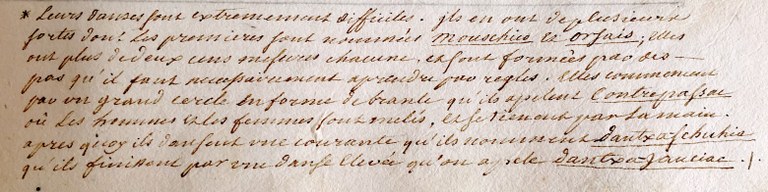 * Leurs danses sont extremement difficiles. jls en ont de plusieurs
sortes dont les premieres sont nommées mouschies et orsais; elles
ont plus de deux cens mesures chacune, et sont formées par des —
pas qu'il faut necessairement aprendre par regles. Elles commencent
par un grand cercle en forme de branle qu'ils apelent Contrepassac
où les hommes et les femmes sont melés, et se tienent par la main.
apres quoy ils dansent une courante qu'ils nomment dantxaschuhia
qu'ils finissent par une danse elevée qu'on apele dantxa jauciac.